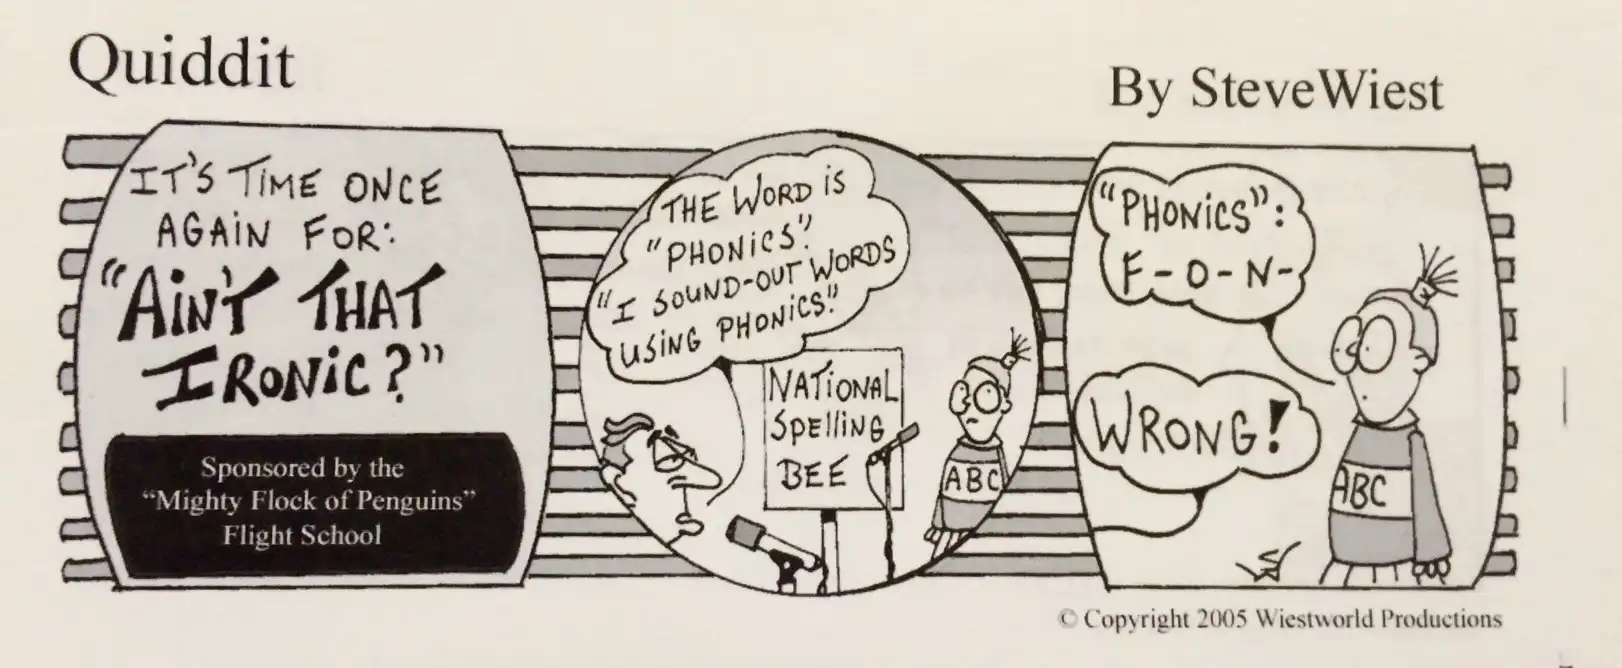 Quiddit
By SteveWiest
IT'S TIME ONCE
AGAIN FOR:
"AIN'T THAT
IRONIC?"
Sponsored by the
"Mighty Flock of Penguins"
Flight School
THE WORD IS
"PHONICS".
"I SOUND-OUT WORDS
USING PHONICS."
NATIONAL
SPElliNG
BEE
ABC
"PHONICS":
F-O-N-
WRONG!
ABC
© Copyright 2005 Wiestworld Productions